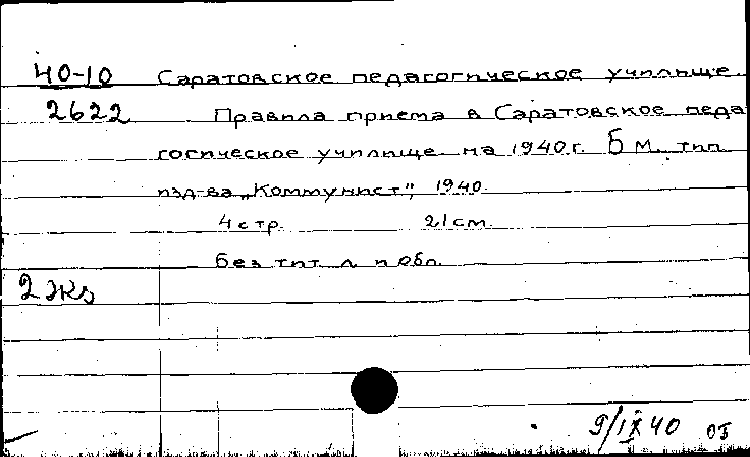 40-10 Саратовское педагогическое училище.
2622 Правила приема в Саратовское педа
гогическое училище на 1940 г. Б м. тип.
изд-ва „Коммунист", 1940.
4 стр. 21 см.
без тит. л. и обл.
2 экз
9/IX 40